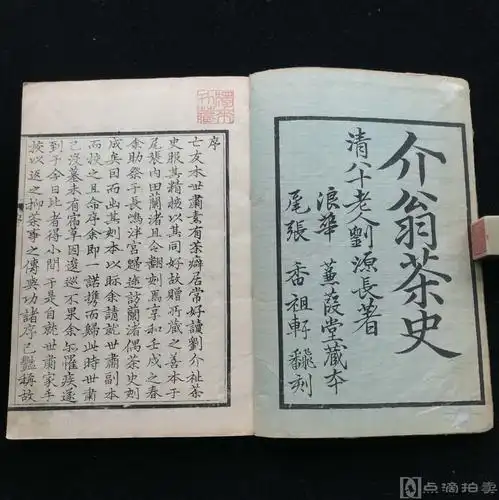 介翁茶史
清八十老人劉源長著
浪華 蒹葭堂藏本
尾張 香祖軒飜刻
序
亡友木世肅素有茶癖居常好讀劉介祉茶
史服其精核以其同好故贈所藏之善本于
尾張内田蘭渚且令翻刻焉享和壬戌之春
余助祭于長嶋津宮歸途訪蘭渚偶茶史刻
成矣因而出其刻本以眎余請就世肅副本
而挍之且命序余即一諾携而歸此時世肅
已沒墓未有宿草因逡巡不果余亦罹疾遂
到于今日比者得小間于是自就世肅家手
挍以返之抑茶事之傳與功諸序已豔稱故
点滴拍卖